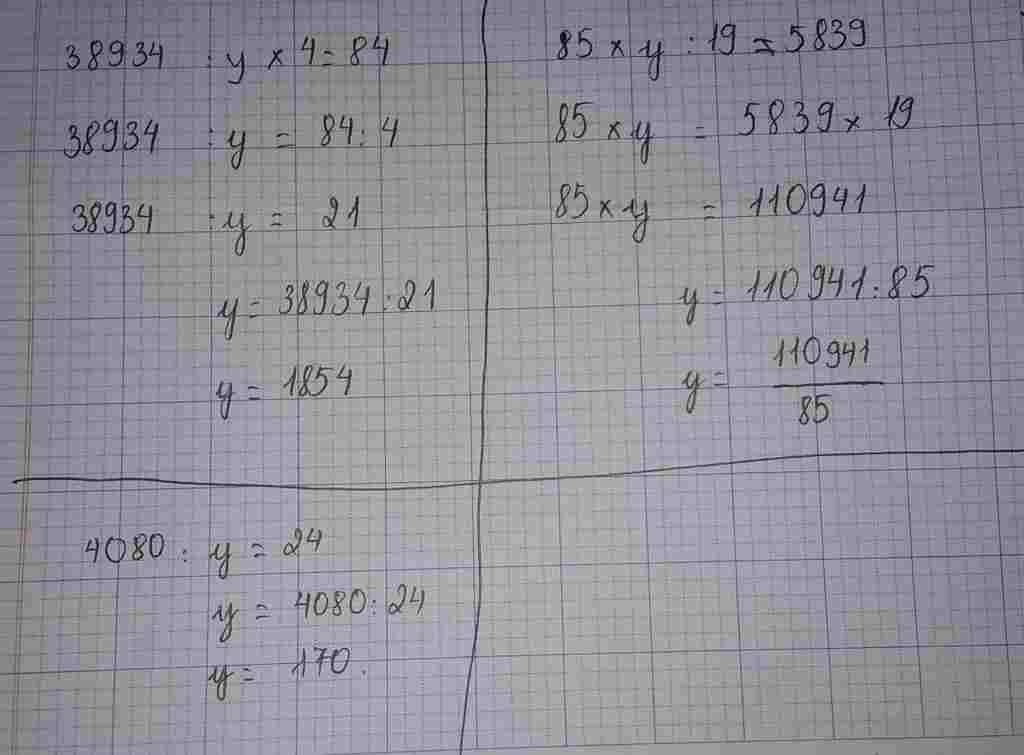 38934 : y × 4 = 84
38934 : y = 84 : 4
38934 : y = 21
y = 38934 : 21
y = 1854
85 × y : 19 = 5839
85 × y = 5839 × 19
85 × y = 110941
y = 110941 : 85
y = 110941
85
4080 : y = 24
y = 4080 : 24
y = 170.